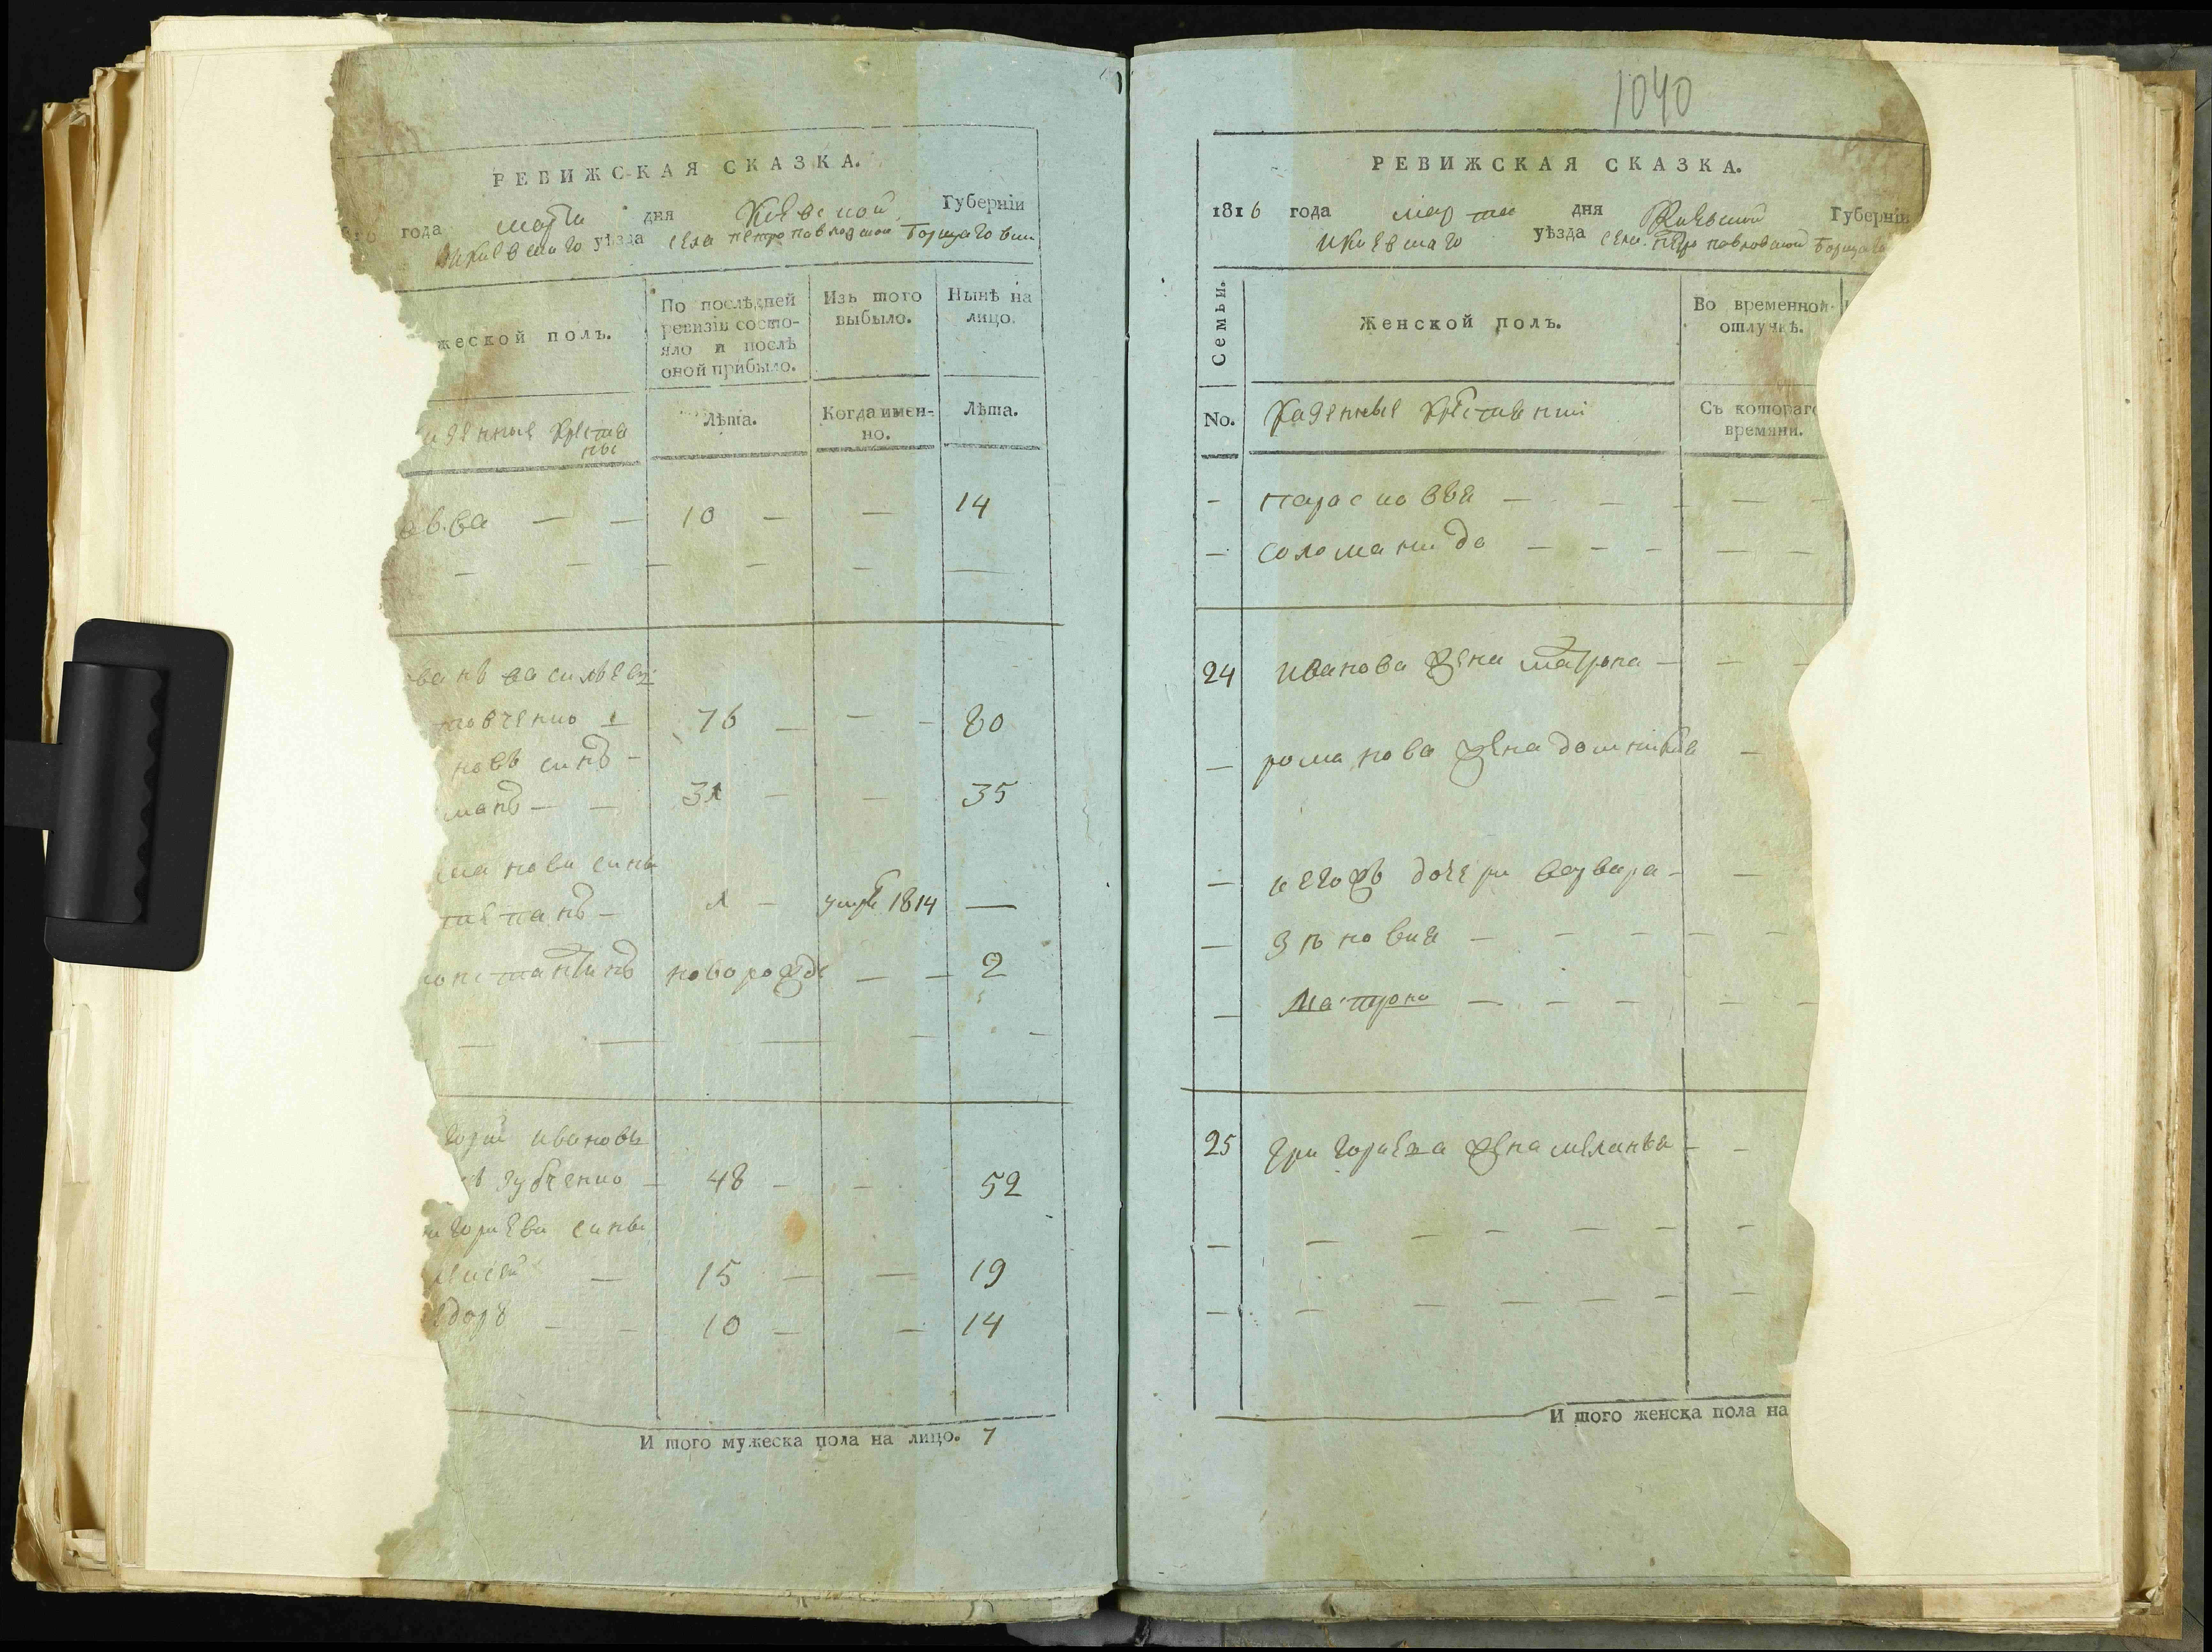 РЕВИЖСКАЯ СКАЗКА.
года марта дня Киевской Губерніи
Киевшаго уѣзда села петропавловшой Борщаговки
жеской полъ.
По послѣдней
ревизіи состо-
яло и послѣ
оной прибыло.
Изъ того
выбыло.
Нынѣ на
лицо.
Лѣта.
Когда имен-
но.
Лѣта.
зенные крестья
не
авва — — 10 — — 14
ванъ васильевъ
товченко 76 — — — 80
новъ синъ —
манъ — — 31 — — 35
манови сины
тепанъ — 1 — умре 1814 —
константинъ новорожде — — 2
горий ивановъ
зубченко — 48 — — 52
горіеви сины
ксей — 15 — — 19
едоръ — — 10 — — 14
И того мужеска пола на лицо. 7
1040
РЕВИЖСКАЯ СКАЗКА.
1816 года марта дня Киевшой Губерніи
Киевшаго уѣзда села петропавловшой Борщаго
Семьи.
Женской полъ.
Во временной
отлучкѣ.
No.
Казенные крестьяни
Съ котораго
времяни.
— парасковья — — — —
— соломанида — — — — —
24 иванова жена матрона — — —
— романова жена домникия —
— иегожъ дочери варвара — —
— зѣновия — — — — —
— матрона — — — — —
25 григориева жена меланья — —
И того женска пола на